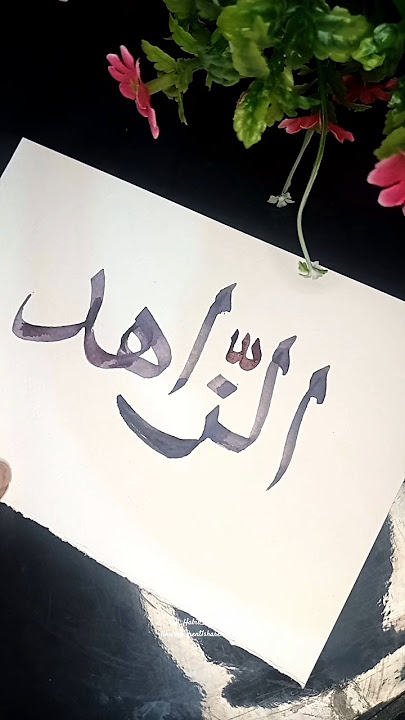 الزّاهد